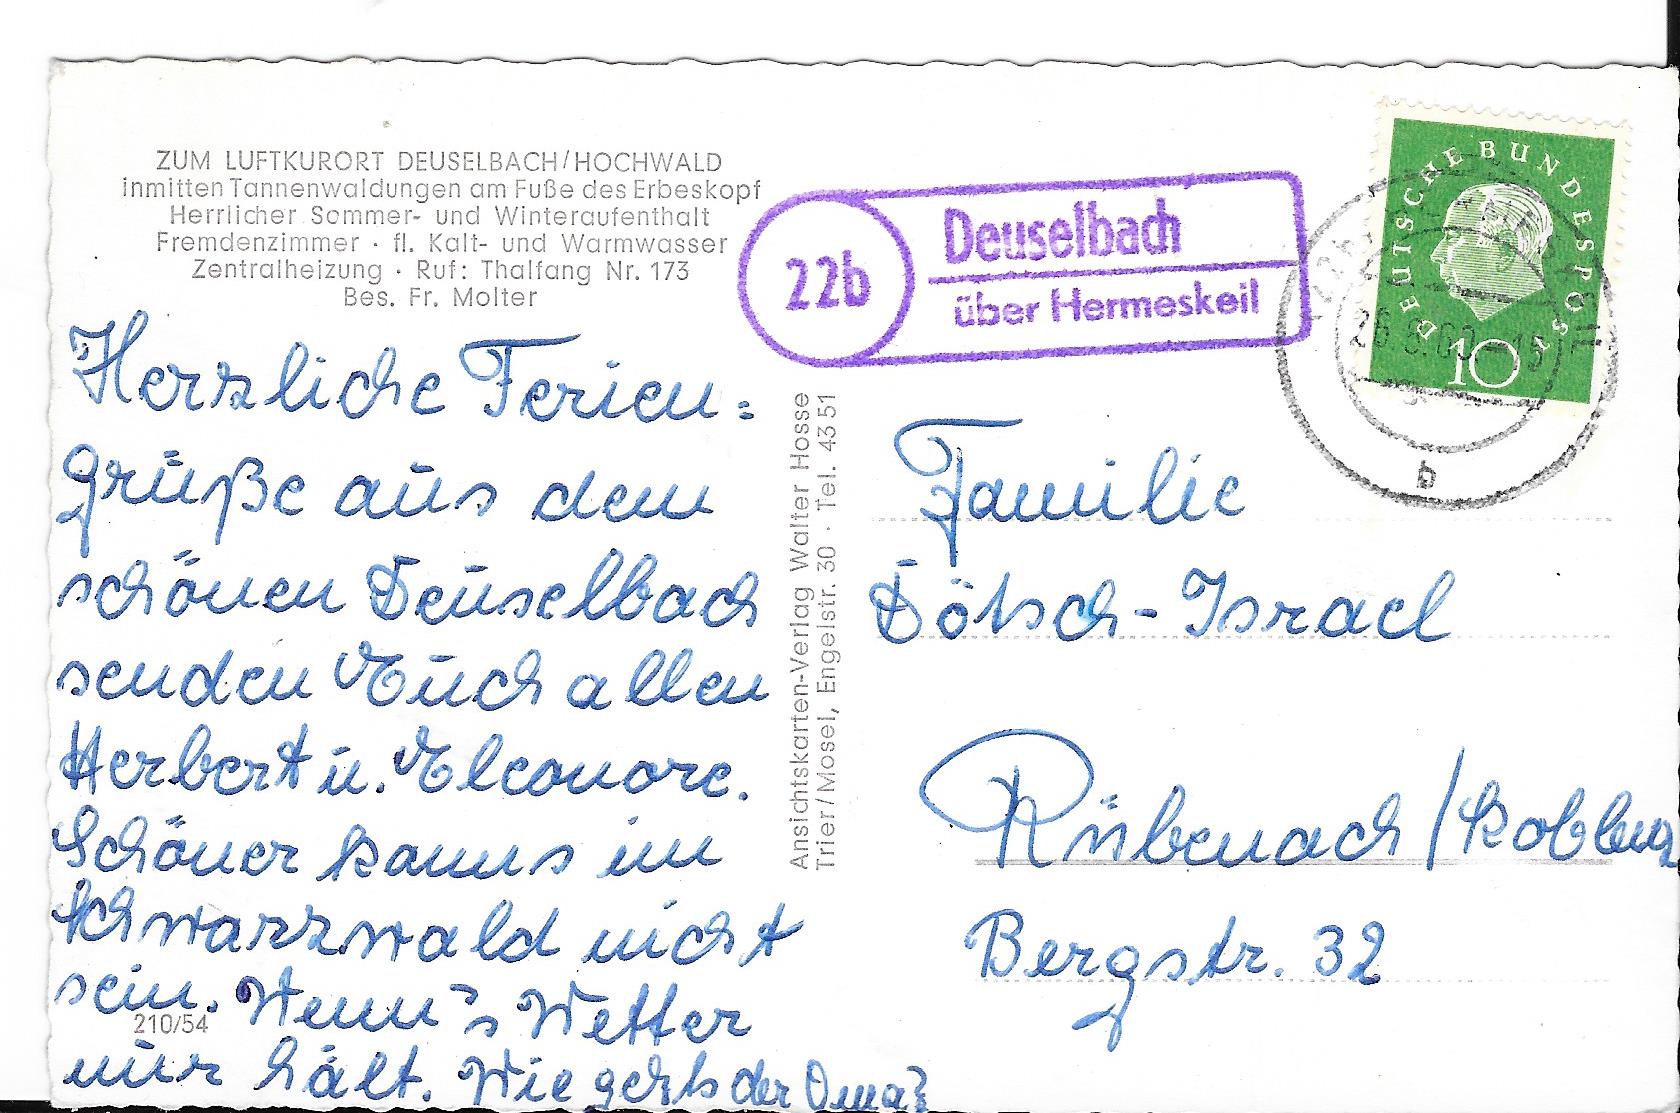 ZUM LUFTKURORT DEUSELBACH/HOCHWALD
inmitten Tannenwaldungen am Fuße des Erbeskopf
Herrlicher Sommer- und Winteraufenthalt
Fremdenzimmer · fl. Kalt- und Warmwasser
Zentralheizung · Ruf: Thalfang Nr. 173
Bes. Fr. Molter
Herzliche Ferien=
grüße aus dem
schönen Deuselbach
senden Euch allen
Herbert u. Eleonore.
Schöner kanns im
Schwarzwald nicht
sein. Wenn's Wetter
nur hält. Wie gehts der Oma?
210/54
Ansichtskarten-Verlag Walter Hosse
Trier/Mosel, Engelstr. 30 · Tel. 4351
22b
Deuselbach
über Hermeskeil
DEUTSCHE BUNDESPOST
10
b
Familie
Dötsch-Israel
Rübenach/Koblenz
Bergstr. 32